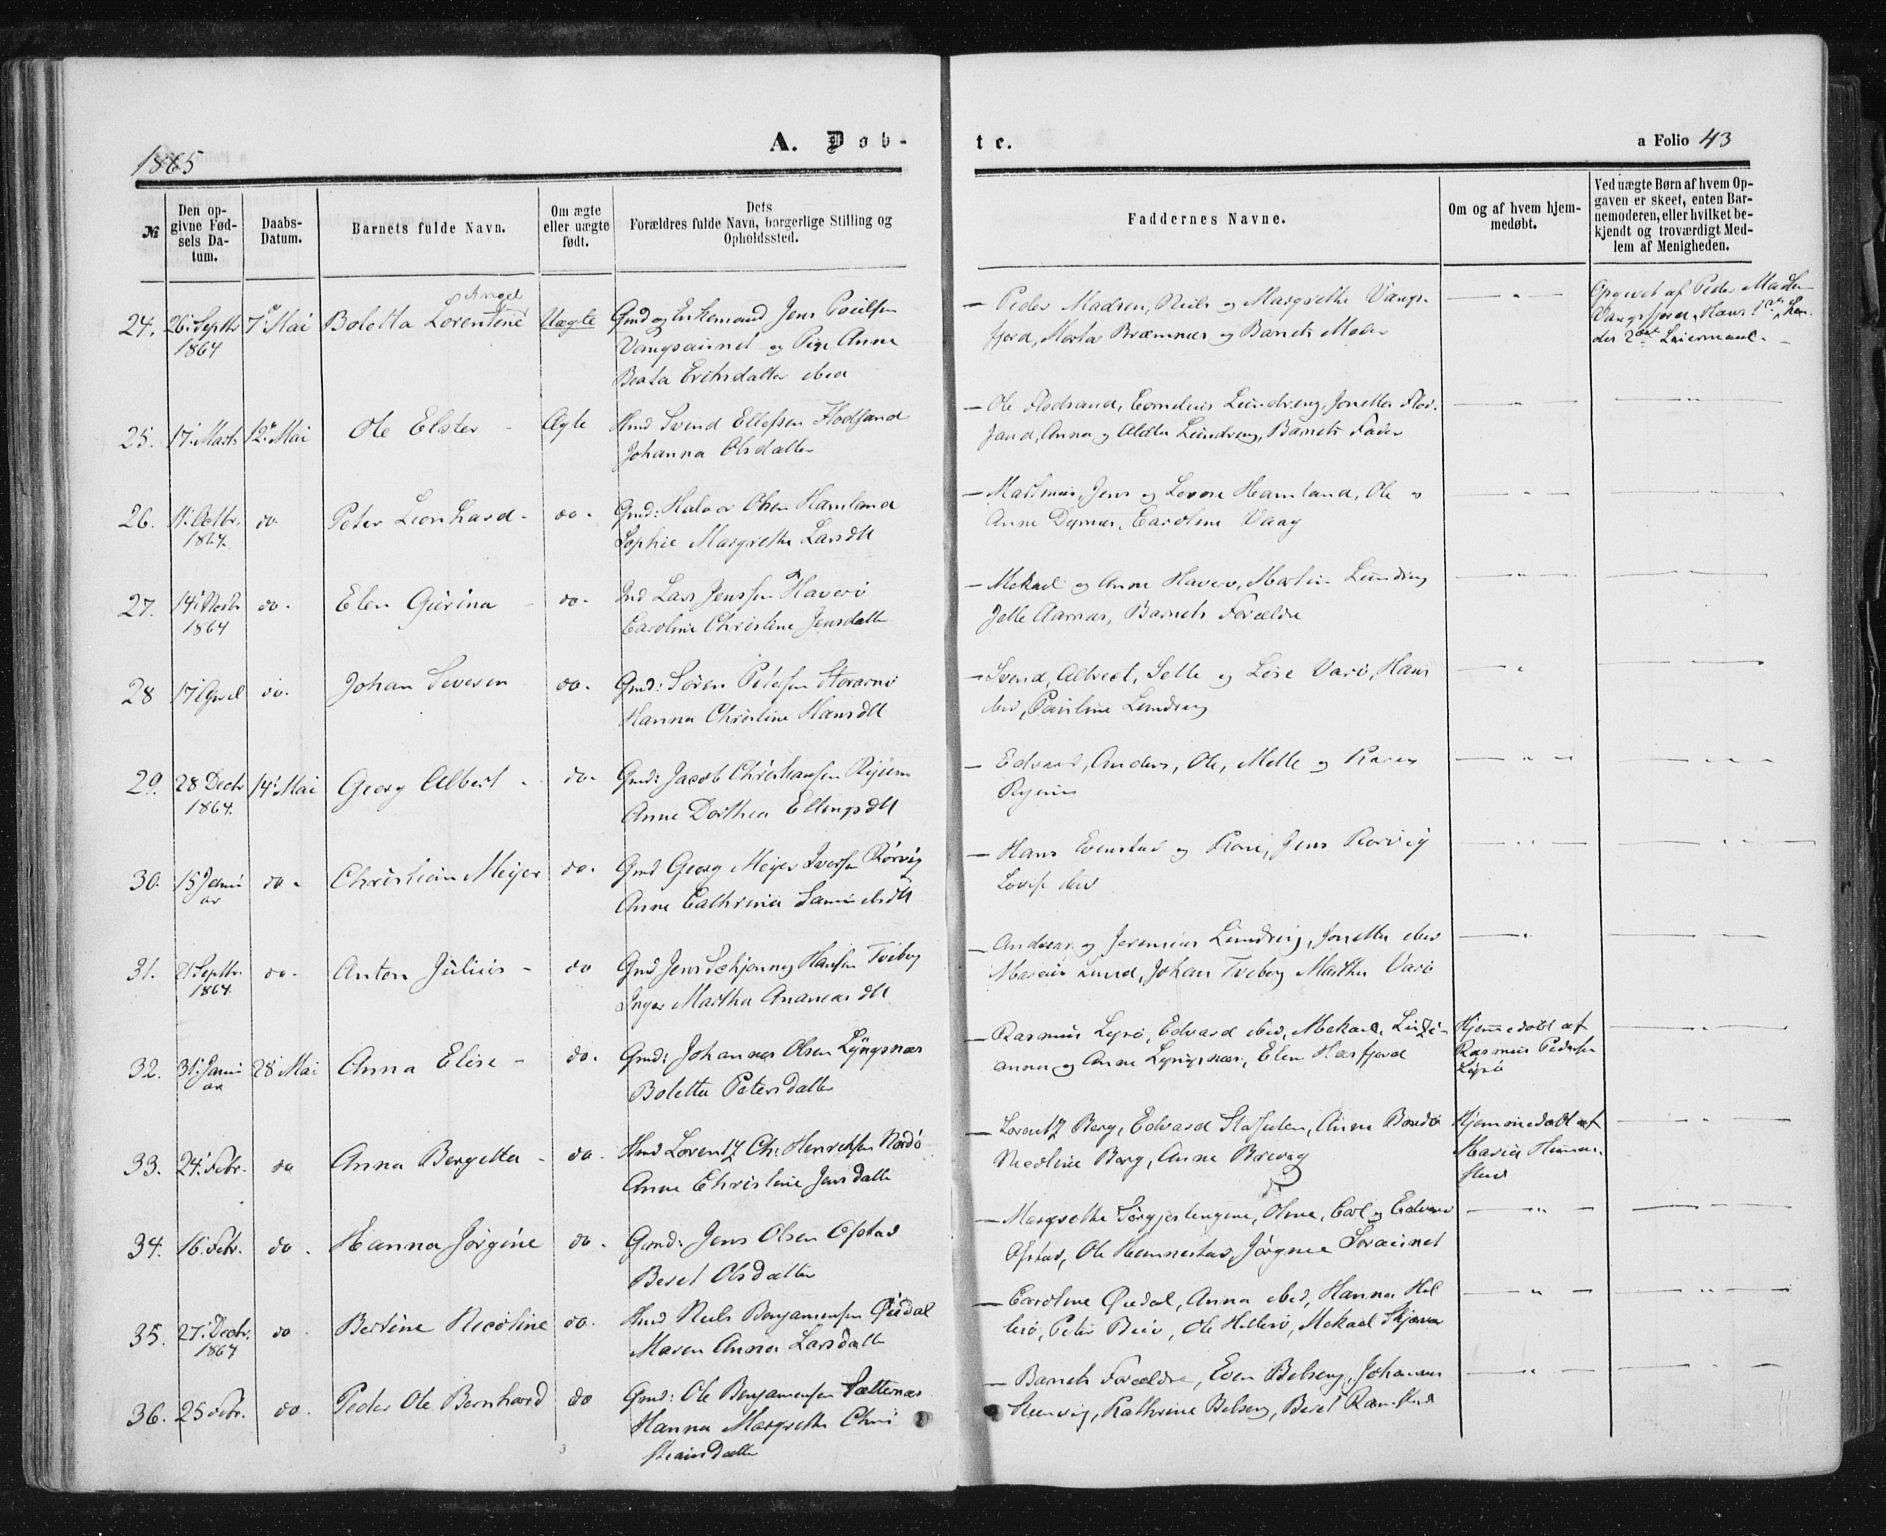 1865
A. Døb-
te.
a Folio 43
№
Den op-
givne Fød-
sels Da-
tum.
Daabs-
Datum.
Barnets fulde Navn.
Om ægte
eller uægte
født.
Dets
Forældres fulde Navn, borgerlige Stilling og
Opholdssted.
Faddernes Navne.
Om og af hvem hjem-
medøbt.
Ved uægte Børn af hvem Op-
gaven er skeet, enten Bar-
nemoderen, eller hvilket be-
kjendt og troværdigt Med-
lem af Menigheden.
24. 26. Septbr 1864 7de Mai Boletta Lorentine Angel Uægte
Gmd og Enkemand Jens Poulsen
Vangsaunet og Pige Anne
Beata Eriksdatter ibid
Peder Madsen, Niels og Margrethe Vangs-
fjord, Marta Bræmnes og Barnets Moder
Opgivet af Peder Madsen
Vangsfjord, Hans 1ste, Hen-
des 2det Leiermaal.
25. 17. Marts 12te Mai Ole Elster - Ægte
Hmd Svend Ellefsen Flodsand
Johanna Olsdatter
Ole Flodsand, Cornelius Lundring, Jonetta Flod-
sand, Anna og Lundring, Barnets Fader
26. 11. Octbr. 1864. do. Peter Leonhard - do.
Gmd: Halvor Olsen Hamland
Sophie Margrethe Larsdtt
Jens og Hamland, Ole
Anne Dypnes, Caroline Vaag
27. 14. Novbr 1864 do. Elen Gurina - do.
Ind Lars Jenssen Haverø
Caroline Christine Jensdatter
Mekael og Anne Haverø, Martin Lundring
Jelle Aarnes, Barnets Forældre
28 17. April do. Johan Severin do.
Gmd: Søren Petersen Storarnø
Hanna Christine Hansdtt
Svend, Albret, Selle og Lise Varø, Hans
ibid, Pauline Lundring
29. 28 Decbr 1864. 14. Mai Georg Albert - do.
Gmd: Jacob Christiansen Ryjem
Anne Dorthea Ellingsdtt
Edvard, Anders, Ole, Mette og Karen
Ryjem
30. 15 Janu
ar do. Christian Meijer do.
Gmd Georg Meijer Iversen Rørvig
Anne Cathrina Samuelsdtt
Hans Evenstad og Kone, Jens Rørvig
Lovise ibid
31. 21. Septbr. 1864. do. Anton Julius - do
Gmd Jens Schjenning Hansen Tviberg
Inger Martha Ananiasdtt
Andreas og Jeremias Lundring, Jonetta ibid
Marius Lund, Johan Tviberg Martha Varø
32. 31. Janu
ar 28 Mai Anna Elise - do.
Gmd: Johannes Olsen Lyngsnæs
Boletta Petersdatter
Rasmus Lyrø, Edvard ibid, Mekael,
anna og Anne Lyngsnæs, Elen Harfjord
Hjemmedøbt af
Rasmus Pedersen
Lyrø
33. 24. Febr. do Anna Bergetta - do.
Hmd Lorentz Ch: Henriksen Nordø
Anne Christine Jensdatter
Lorentz Berg, Edvard, Anne Nordø
Nicoline Berg, Anne Brevag
Hjemmedøbt af
Maria
34. 16. Febr. do. Hanna Jørgine do.
Gmd: Jens Olsen Ofstad
Beret Olsdatter
Margrethe Sørgjeslingene, Oline, Carl og Edvard
Ofstad, Ole Hennestad, Jørgine Soraunet
35. 27. Decbr. 1864 do. Bertine Nicoline do.
Hmd Niels Benjaminsen Øiedal
Maren Anna Larsdatter
Caroline Øiedal, Anna ibid, Hanna Hal-
lerø, Peter, Ole Hallerø, Mekael
36. 25 Febr. do. Peder Ole Bernhard do
Gmd: Ole Benjaminsen Sætternæs
Hanna Margrethe Chri
stiansdatter
Barnets Forældre, Even Belseng, Johannes
Steenvig, Kathrine Belseng, Beret Ramstad